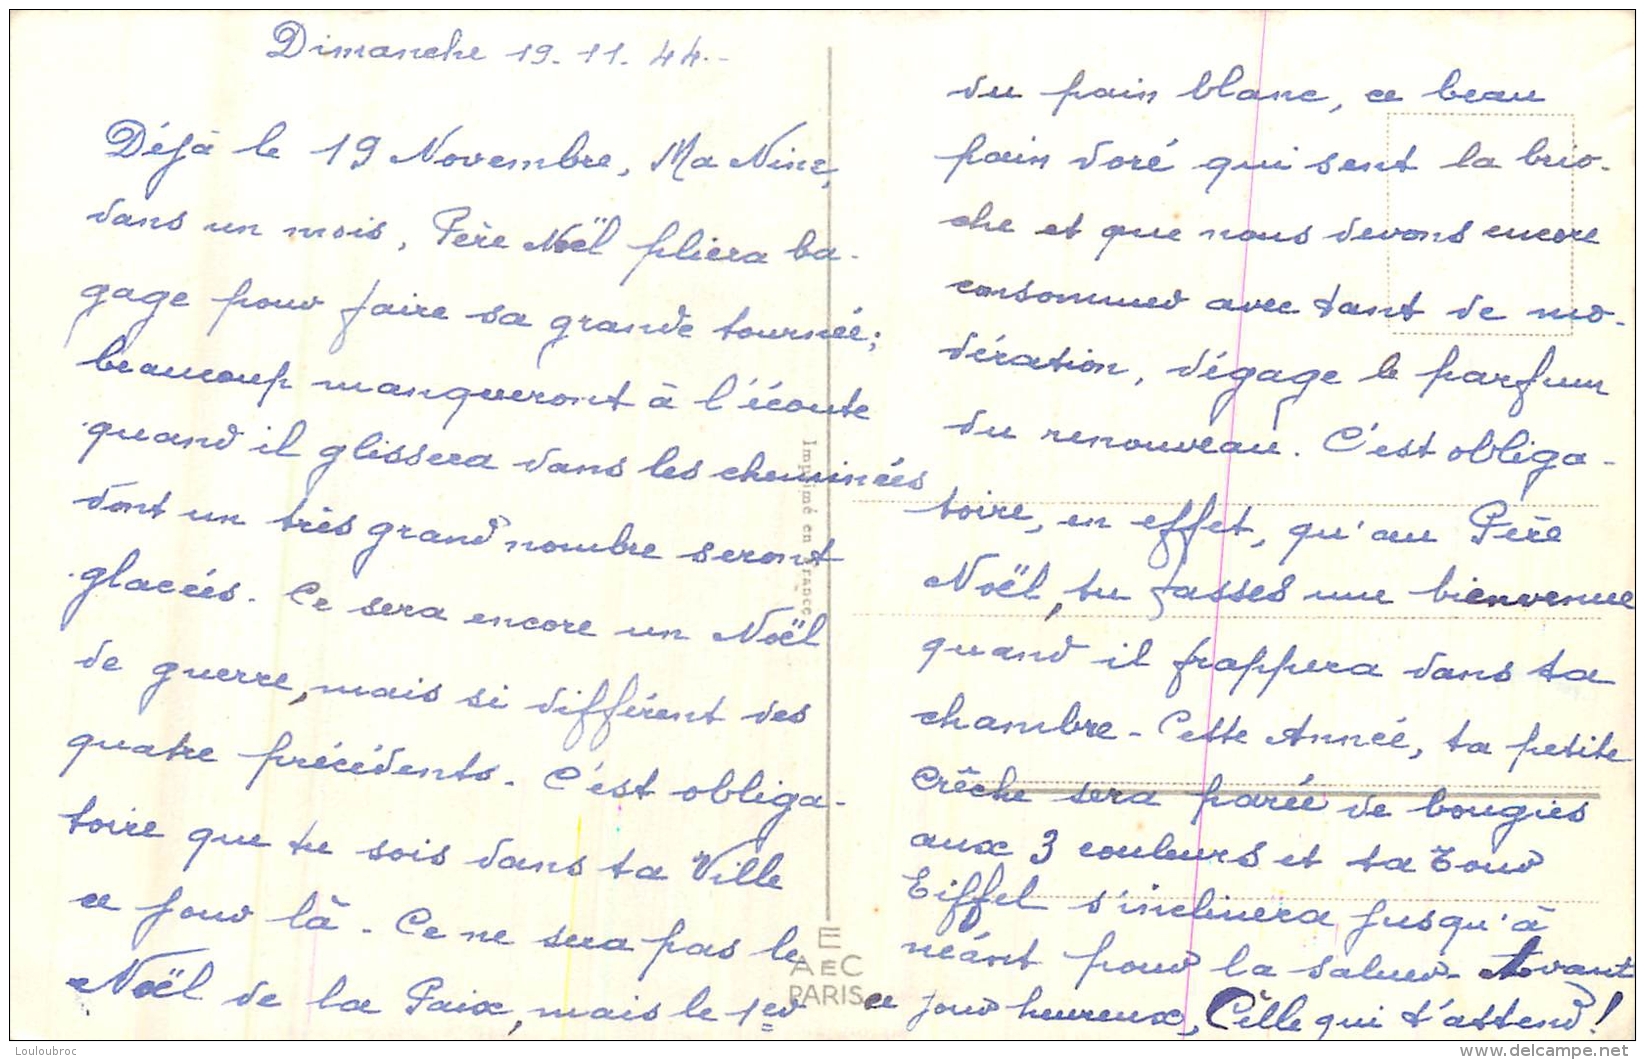 Dimanche 19.11.44.-
Déjà le 19 Novembre, Ma Nine,
dans un mois, Père Noël pliera ba-
gage pour faire sa grande tournée;
beaucoup manqueront à l'écoute
quand il glissera dans les cheminées
dont un très grand nombre seront
glacées. Ce sera encore un Noël
de guerre, mais si différent des
quatre précédents. C'est obliga-
toire que tu sois dans ta Ville
ce jour là. Ce ne sera pas le
Noël de la Paix, mais le 1er
du pain blanc, ce beau
pain doré qui sent la brio-
che et que nous devons encore
consommer avec tant de mo-
dération, dégage le parfum
du renouveau. C'est obliga-
toire, en effet, qu'au Père
Noël, tu fasses une bienvenue
quand il frappera dans ta
chambre. Cette Année, ta petite
Crêche sera parée de bougies
aux 3 couleurs et ta Tour
Eiffel s'inclinera jusqu'à
néant pour la saluer. Avant
ce jour heureux, Celle qui t'attend!
Imprimé en France
E
AEC
PARIS
Louloubroc
www.delcampe.net